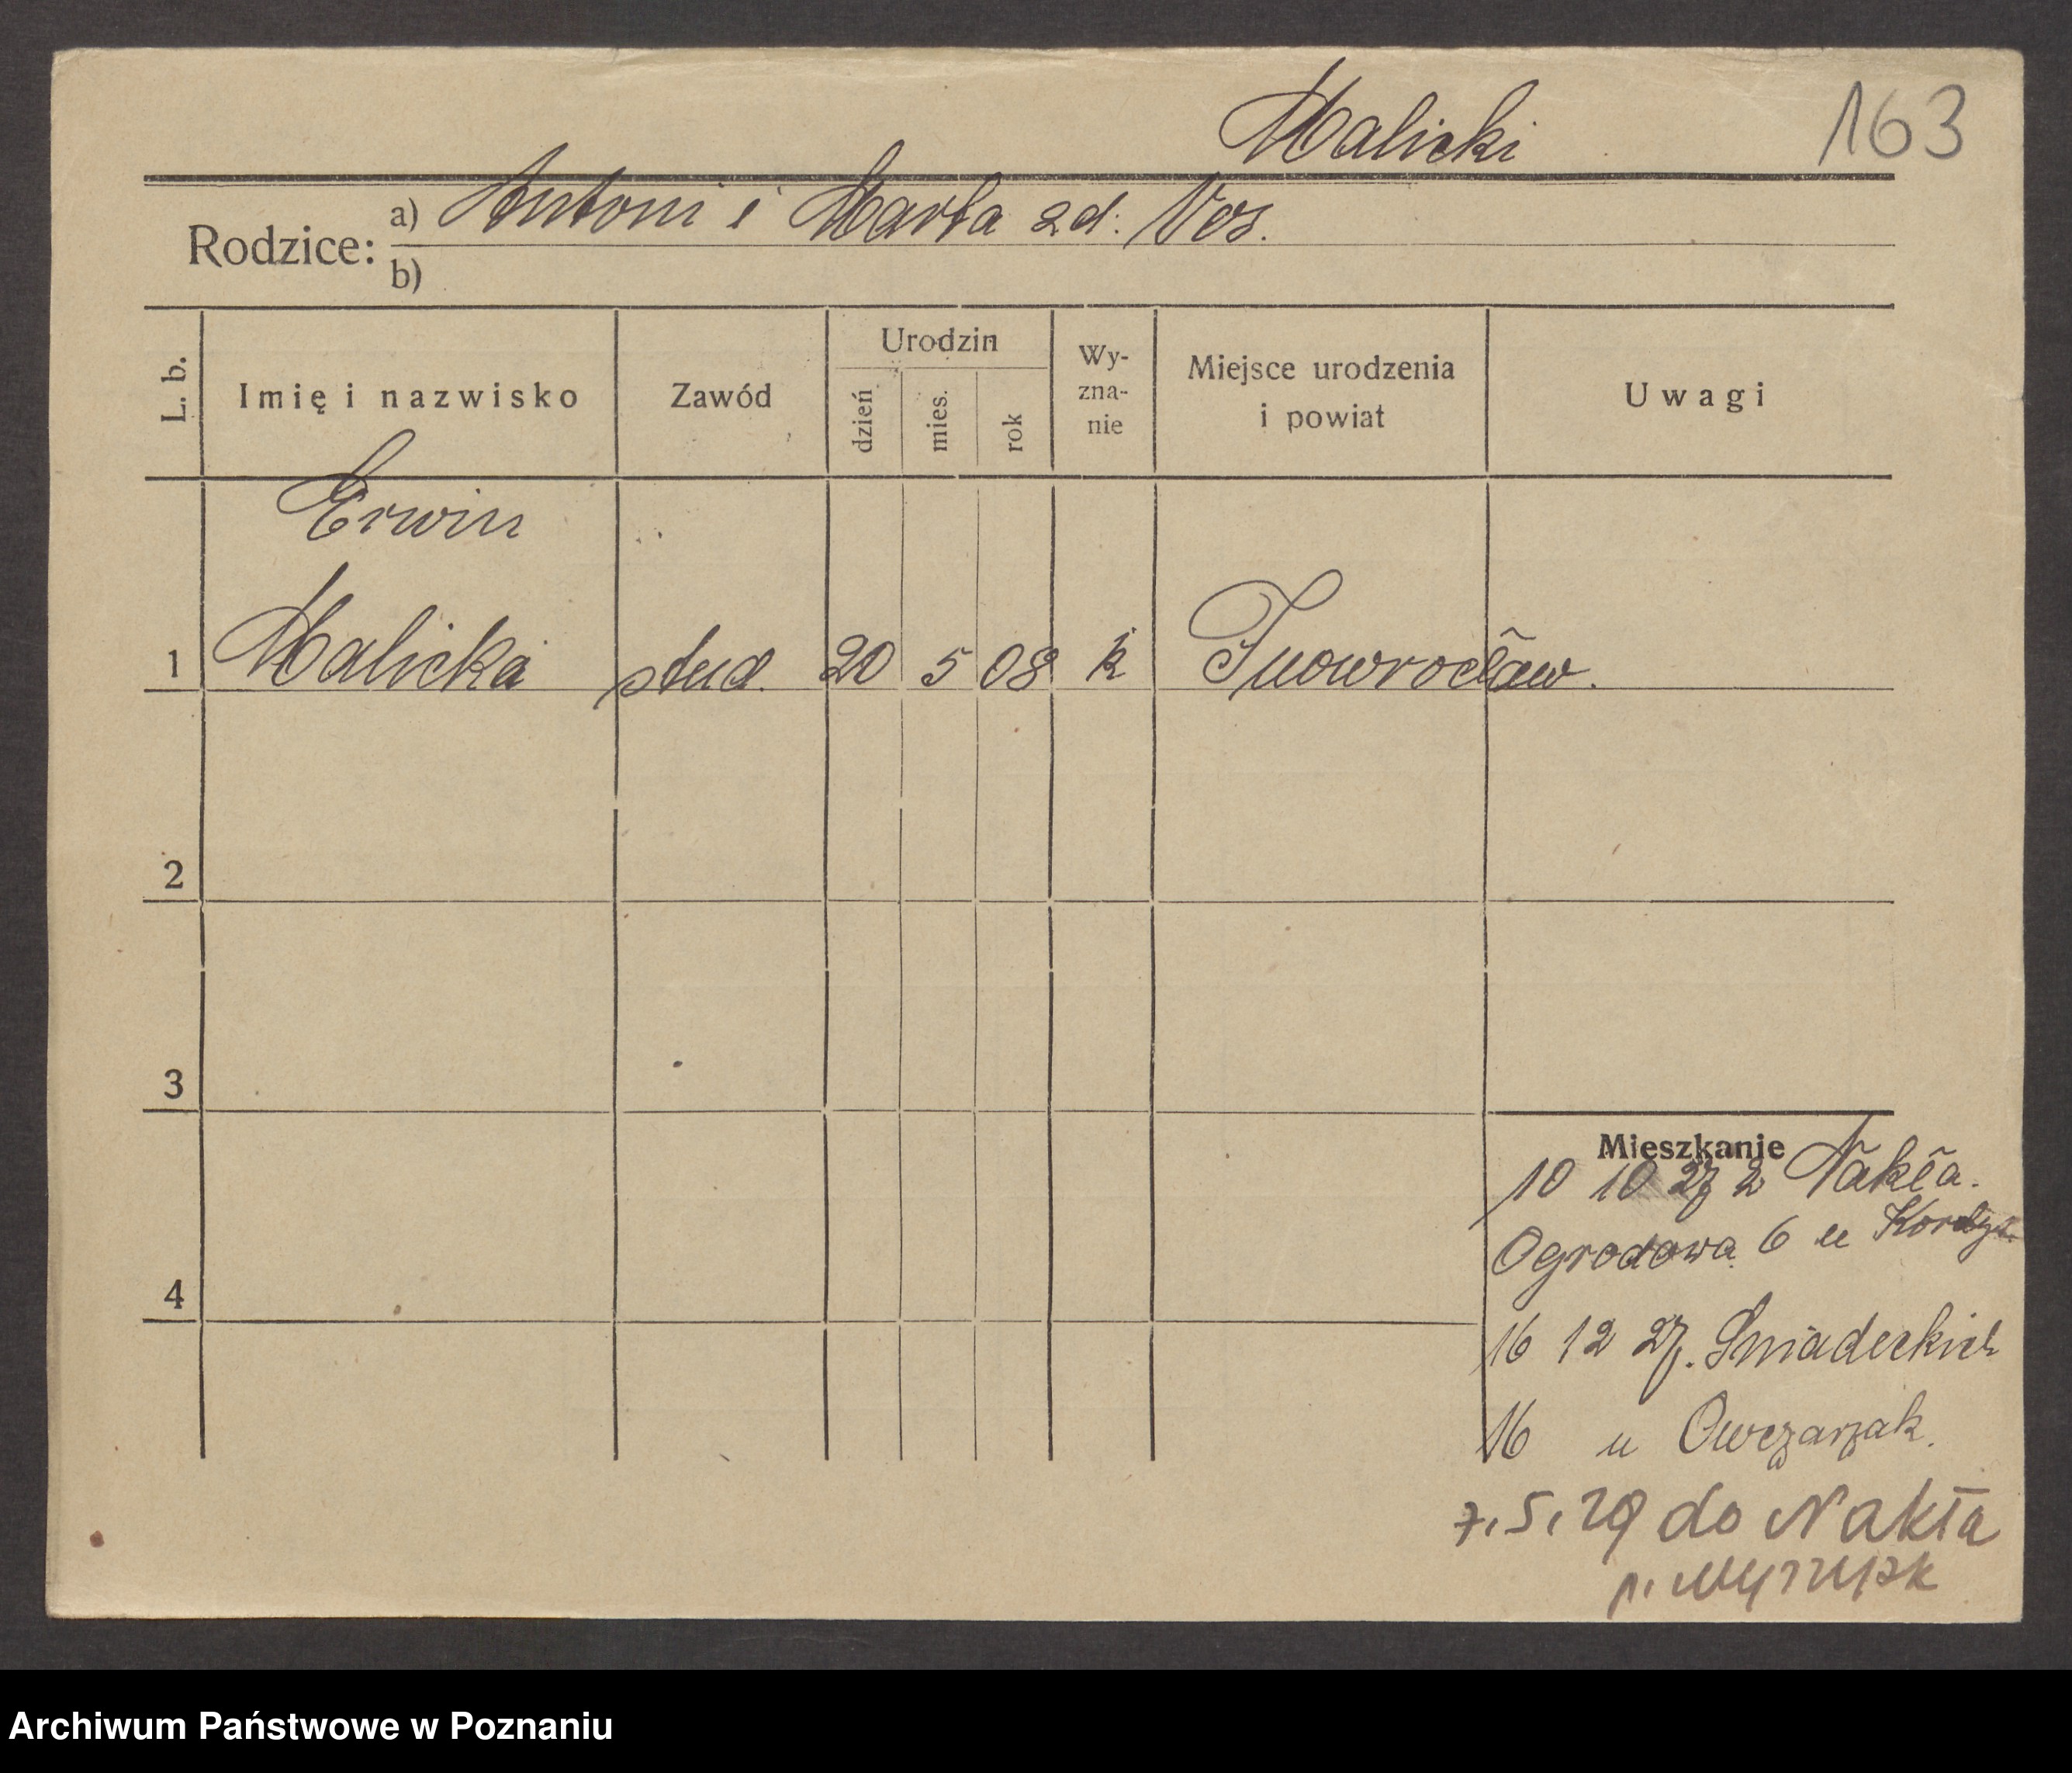 Malicki
163
Rodzice:
a) Antoni i Marta zd: Vos.
b)
L. b.
Imię i nazwisko
Zawód
Urodzin
dzień
mies.
rok
Wy-
zna-
nie
Miejsce urodzenia
i powiat
Uwagi
Erwin
1 Malicka stud. 20 5 08 k Inowrocław.
2
3
4
Mieszkanie
10 10 27 z Nakła.
Ogrodowa 6 u
16 12 27. Śniadeckich
16 u Owczarzak.
7.5.29 do Nakła
p. Wyrzysk
Archiwum Państwowe w Poznaniu